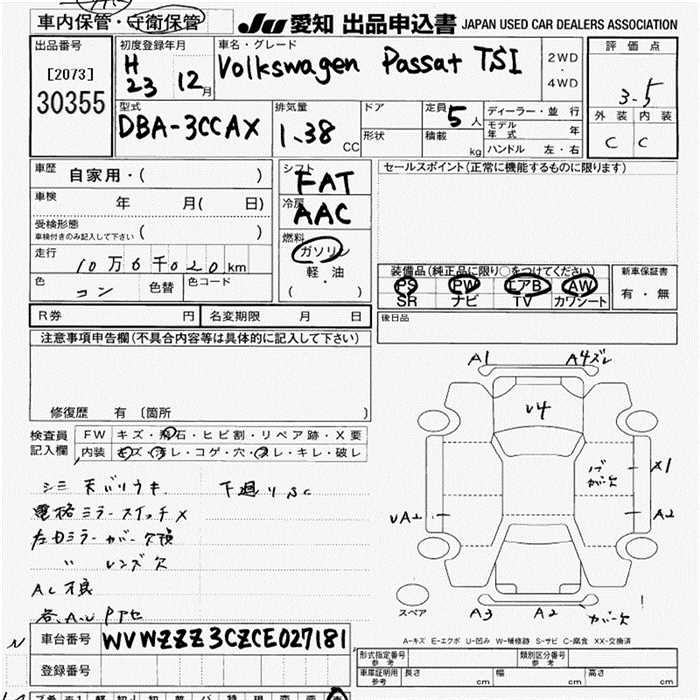 車内保管・守衛保管
JU 愛知 出品申込書 JAPAN USED CAR DEALERS ASSOCIATION
出品番号
[2073]
30355
初度登録年月
H 23 12月
車名・グレード
Volkswagen Passat TSI
2WD
・
4WD
評価点
3.5
外装 内装
C C
型式
DBA-3CCAX
排気量
1.38 CC
ドア
形状
定員 5人
積載 kg
ディーラー・並行
モデル年式 年
ハンドル 左・右
車歴 自家用・( )
車検 年 月( 日)
受検形態
車検付きのみ記入して下さい ( )
走行 10万6千020km
色 コン 色替 色コード
シフト
FAT
冷房
AAC
燃料
ガソリン
軽・油
( ・ )
セールスポイント(正常に機能するものに限ります)
装備品(純正品に限り○をつけてください)
PS PW エアB AW
SR ナビ TV カワシート
新車保証書
有・無
R券 円 名変期限 月 日
後日品
注意事項申告欄(不具合内容等は具体的に記入して下さい)
修復歴 有〔箇所 〕
検査員
記入欄
FW キズ・飛石・ヒビ割・リペア跡・X要
内装 キズ・汚レ・コゲ・穴・スレ・キレ・破レ
シミ 天バリウキ 下廻りSC
電格ミラースイッチX
左右ミラーカバー欠損
〃 レンズ欠
A1 A4ズレ
V4
カバー欠
X1
A2
A3 A2 カバー欠
スペア
A-キズ E-エクボ U-凹み W-補修跡 S-サビ C-腐食 XX-交換済
車台番号 WVWZZZ3CZCE027181
登録番号
形式指定番号
参考
類別区分番号
参考
車庫証明用
参考
長さ cm 幅 cm 高さ cm